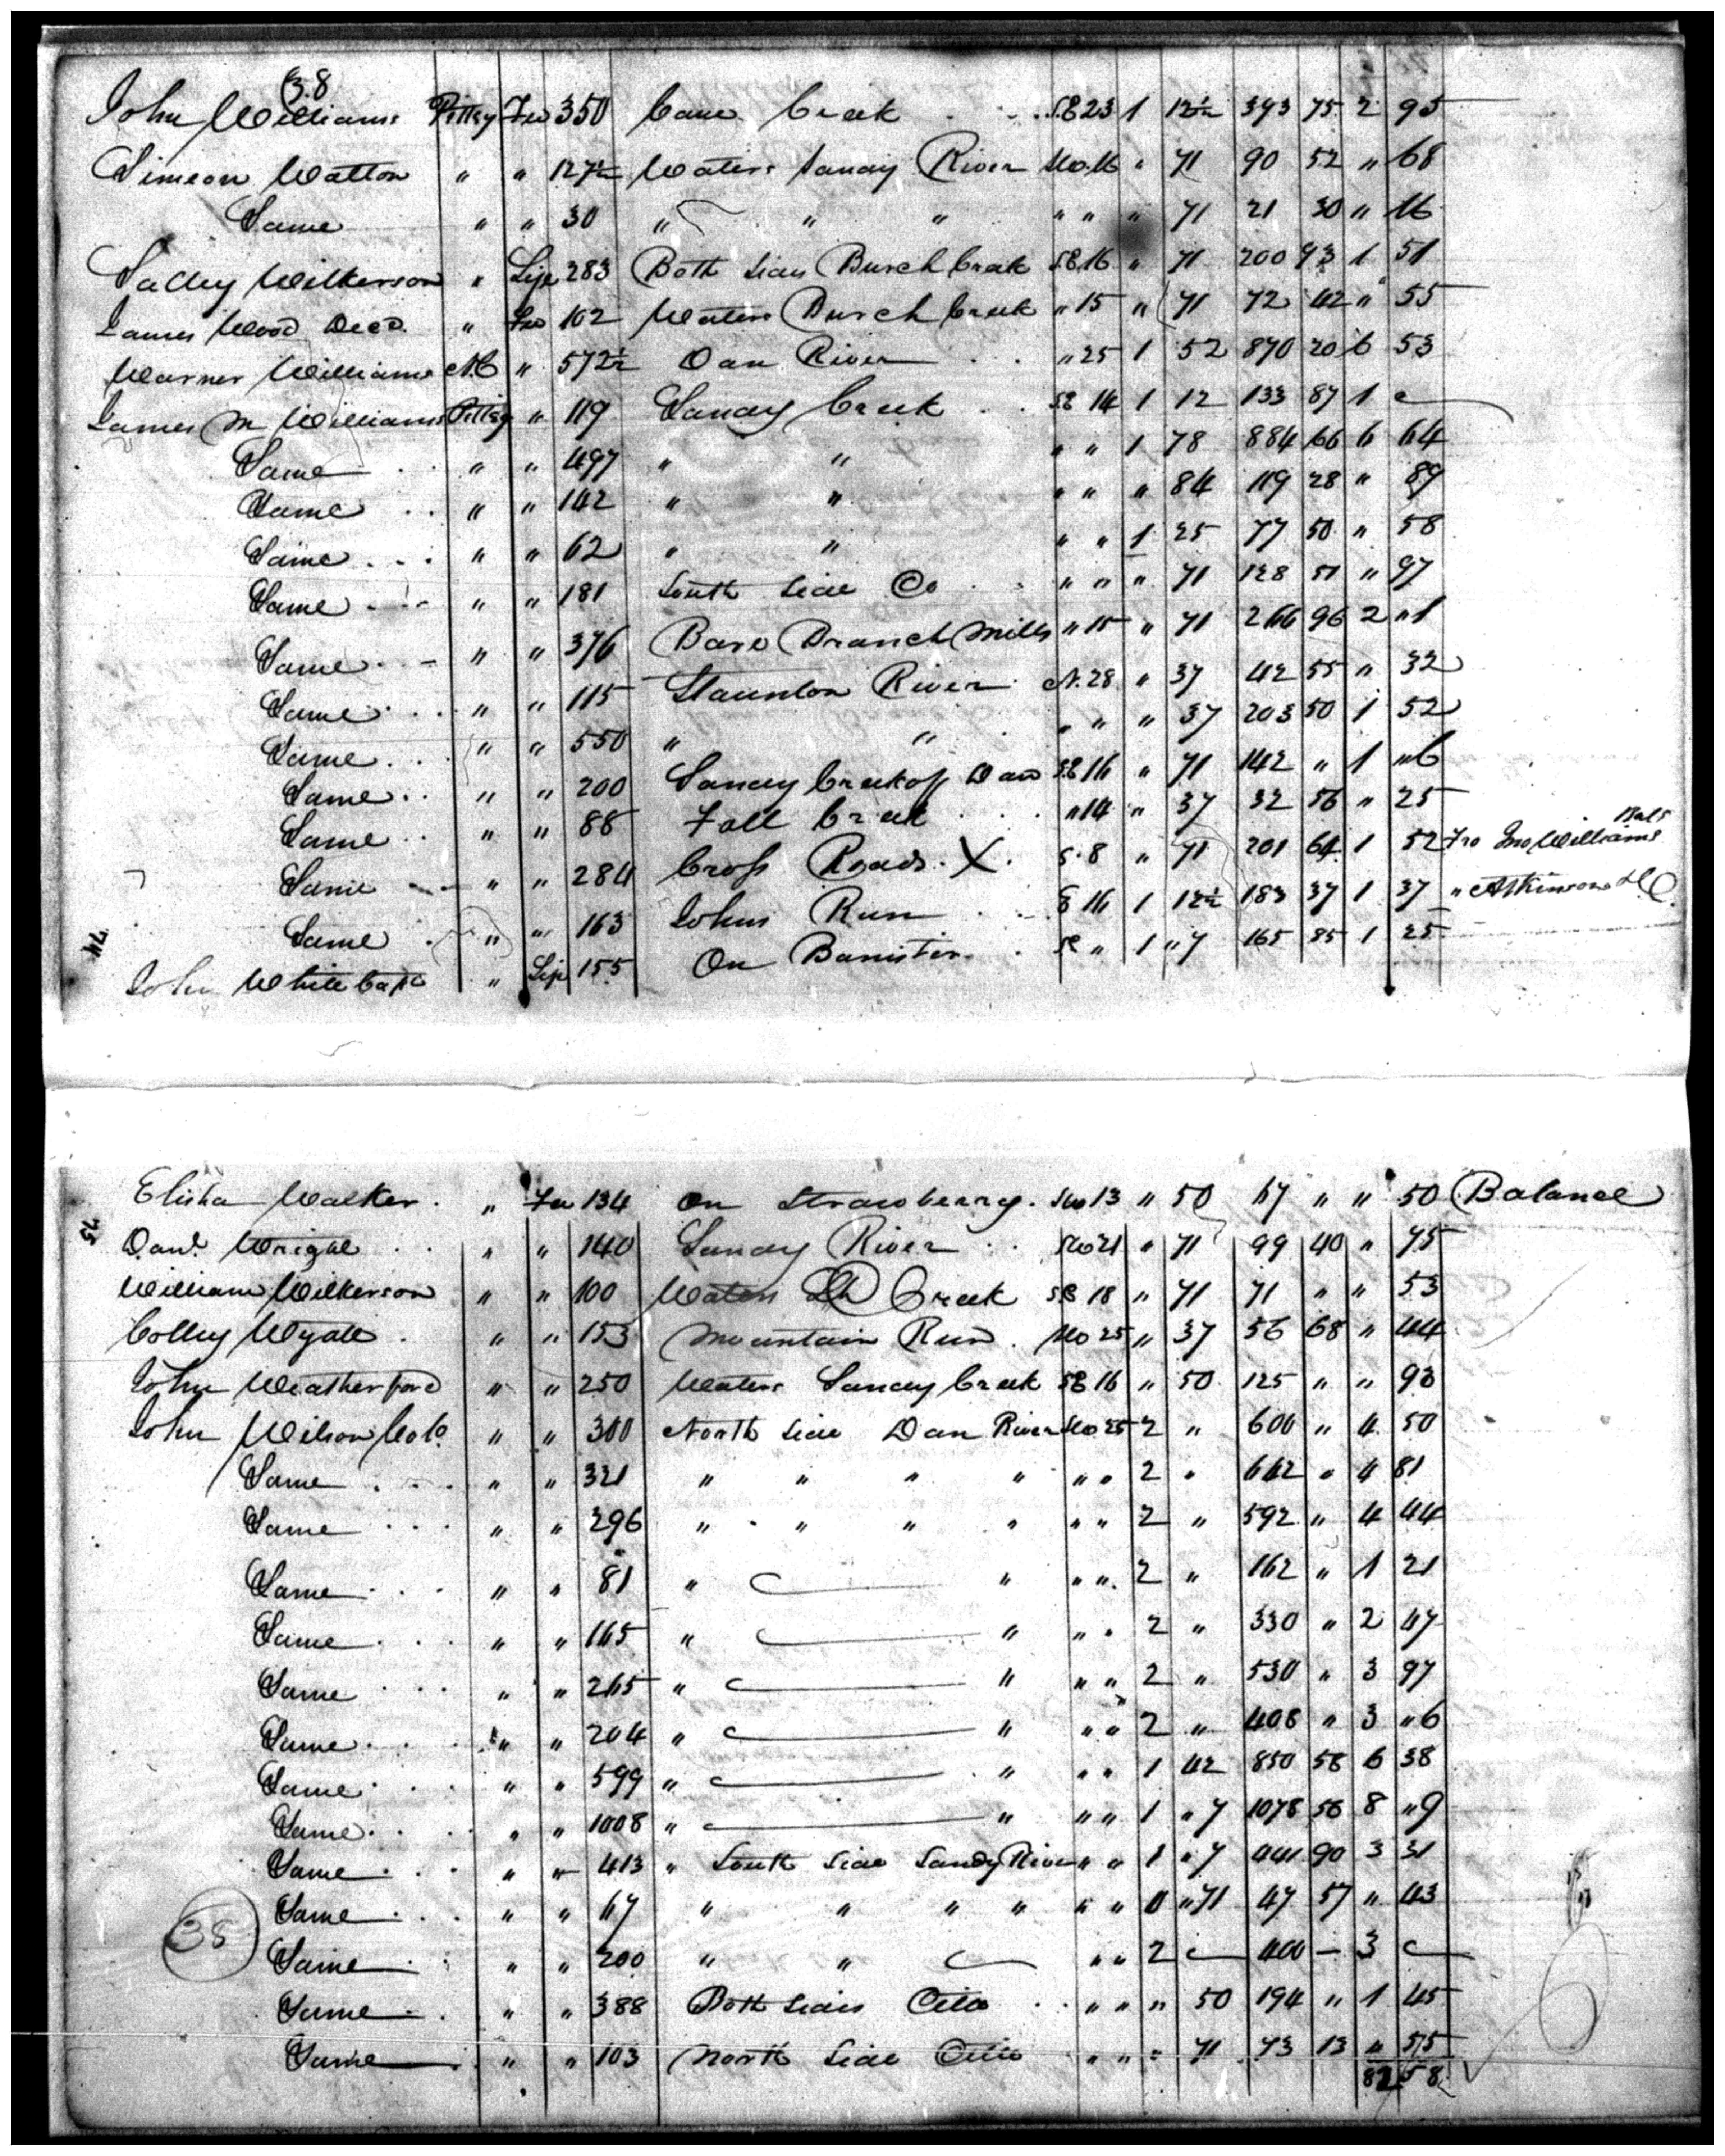 38
John Williams Pittsy Fee 350 Cane Creek SE 23 1 12½ 393 75 2 95
Simeon Walton " " 127½ Waters Sandy River So.16 " 71 90 52 " 68
Same " " 30 " " " " " " 71 21 30 " 16
Salley Wilkerson " Life 283 Both Sides Burch Creek SE 16 " 71 200 93 1 51
James Wood Decd. " Fee 102 Waters Burch Creek " 15 " 71 72 42 " 55
Warner Williams N.C " 572½ Dan River " 25 1 52 870 20 6 53
James M Williams Pittsy " 119 Sandy Creek SE 14 1 12 133 87 1
Same " " 497 " " " " 1 78 884 66 6 64
Same " " 142 " " " " " 84 119 28 " 89
Same " " 62 " " " " 1 25 77 50 " 58
Same " " 181 South Side Do " " " 71 128 51 " 97
Same " " 376 Bare Branch Mills " 15 " 71 266 96 2 "1
Same " " 115 Staunton River N. 28 " 37 42 55 " 32
Same " " 550 " " " " " 37 203 50 1 52
Same " " 200 Sandy Creek of Dan SE 16 " 71 142 " 1 "6
Same " " 88 Fall Creek " 14 " 37 32 56 " 25
Bals
Same " " 284 Cross Roads X S. 8 " 71 201 64 1 52 Fro Jno Williams
Same " " 163 Johns Run E 16 1 12½ 183 37 1 37 " Atkinson
74
John White Capt " Life 155 On Banister SE " 1 "7 165 85 1 25
75
Elisha Walker " Fee 134 On Strawberry So 13 " 50 67 " " 50 Balance
Danl. Wright " " 140 Sandy River So 21 " 71 99 40 " 75
William Wilkerson " " 100 Waters Creek SE 18 " 71 71 " " 53
Colley Wyatt " " 153 Mountain Run So 25 " 37 56 68 " 44
John Weatherford " " 250 Waters Sandy Creek SE 16 " 50 125 " " 93
John Wilson Colo. " " 300 North Side Dan River So 25 2 " 600 " 4 50
Same " " 321 " " " " " " 2 " 642 " 4 81
Same " " 296 " " " " " " 2 " 592 " 4 44
Same " " 81 " " " " 2 " 162 " 1 21
Same " " 165 " " " " 2 " 330 " 2 47
Same " " 265 " " " " 2 " 530 " 3 97
Same " " 204 " " " " 2 " 408 " 3 "6
Same " " 599 " " " " 1 42 850 58 6 38
Same " " 1008 " " " " 1 "7 1078 56 8 "9
Same " " 413 " South Side Sandy River " " 1 "7 441 90 3 31
38
Same " " 67 " " " " " " 0 "71 47 57 " 43
Same " " 200 " " " " 2 400 — 3
Same " " 388 Both Sides Ditto " " " 50 194 " 1 45
Same " " 103 North Side Ditto " " " 71 73 13 " 55
82 58